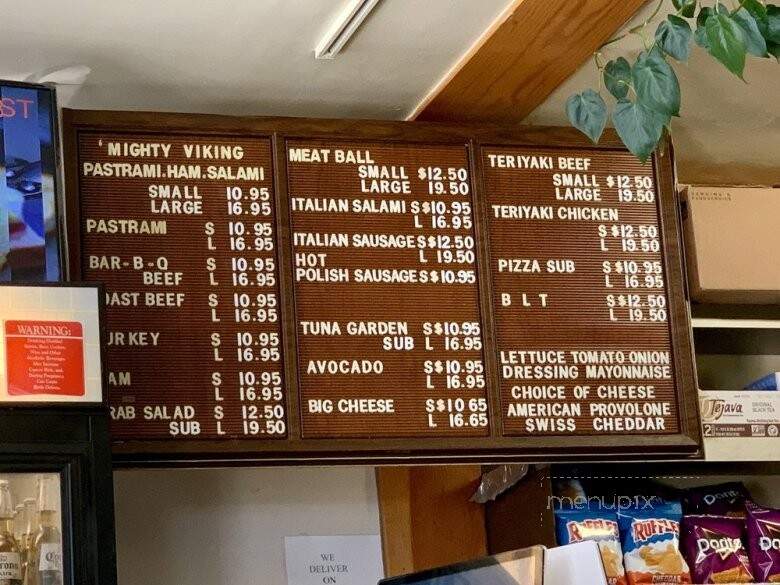 ST
'MIGHTY VIKING
PASTRAMI.HAM.SALAMI
SMALL 10.95
LARGE 16.95
PASTRAMI S 10.95
L 16.95
BAR-B-Q S 10.95
BEEF L 16.95
OAST BEEF S 10.95
L 16.95
URKEY S 10.95
L 16.95
AM S 10.95
L 16.95
RAB SALAD S 12.50
SUB L 19.50
MEAT BALL
SMALL $12.50
LARGE 19.50
ITALIAN SALAMI S $10.95
L 16.95
ITALIAN SAUSAGE S $12.50
HOT L 19.50
POLISH SAUSAGE S $10.95
TUNA GARDEN S $10.95
SUB L 16.95
AVOCADO S $10.95
L 16.95
BIG CHEESE S $10 65
L 16.65
TERIYAKI BEEF
SMALL $12.50
LARGE 19.50
TERIYAKI CHICKEN
S $12.50
L 19.50
PIZZA SUB S $10.95
L 16.95
B L T S $12.50
L 19.50
LETTUCE TOMATO ONION
DRESSING MAYONNAISE
CHOICE OF CHEESE
AMERICAN PROVOLONE
SWISS CHEDDAR
WARNING:
Drinking Distilled
Spirits, Beer, Coolers,
Wine and Other
Alcoholic Beverages
May Increase
Cancer Risk, and,
During Pregnancy,
Can Cause
Birth Defects.
Tejava
ORIGINAL
BLACK TEA
12
menupix
RUFFLES
RUFFLES
CHEDDAR
Doritos
WE
DELIVER
ON